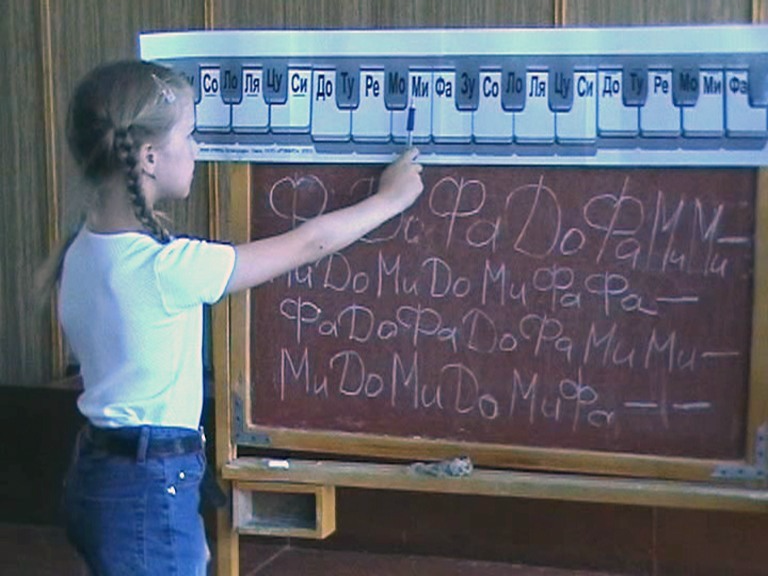 Со Ло Ля Цу Си До Ту Ре Мо Ми Фа Зу Со Ло Ля Цу Си До Ту Ре Мо Ми Фа
До Фа До Фа Ми Ми —
Ми До Ми До Ми Фа Фа —
Фа До Фа До Фа Ми Ми —
Ми До Ми До Ми Фа — | —